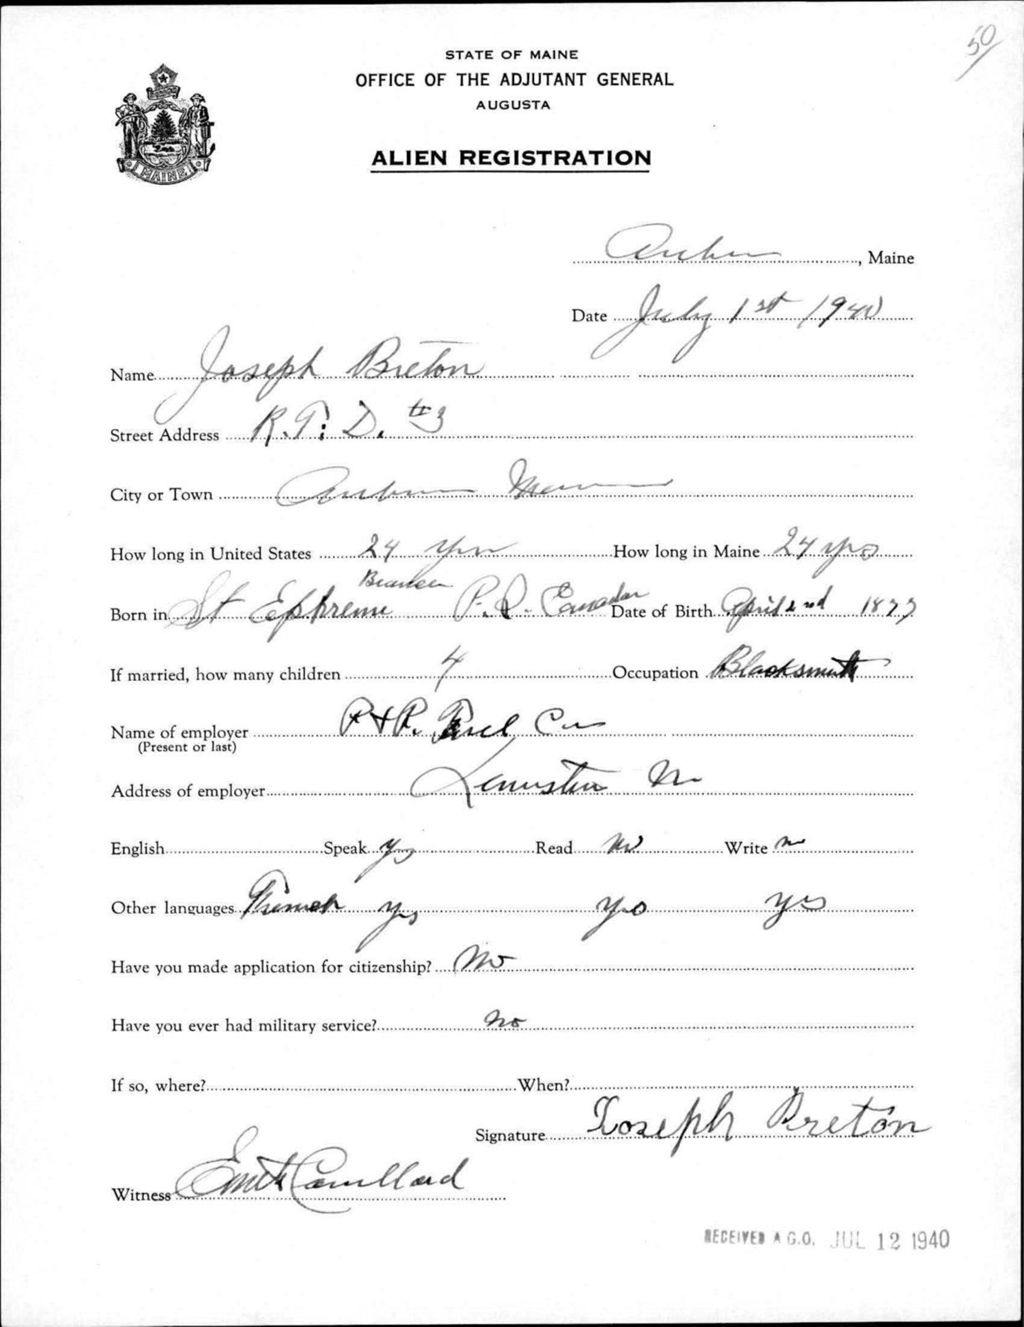 50
STATE OF MAINE
OFFICE OF THE ADJUTANT GENERAL
AUGUSTA
ALIEN REGISTRATION
MAINE
Auburn, Maine
Date July 1st 1940
Name Joseph Breton
Street Address R.F.D. #3
City or Town Auburn Maine
How long in United States 24 yrs How long in Maine 24 yrs
Beauce
Born in St Ephreme P.Q. Canada Date of Birth April 2nd 1877
If married, how many children 4 Occupation Blacksmith
Name of employer P & R. Fuel Co
(Present or last)
Address of employer Lewiston Me
English Speak yes Read No Write no
Other languages French yes yes yes
Have you made application for citizenship? No
Have you ever had military service? No
If so, where? When?
Signature Joseph Breton
Witness
RECEIVED A.G.O. JUL 12 1940